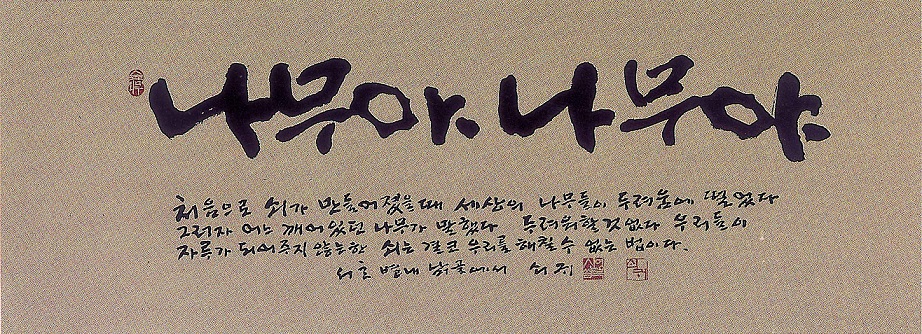 나무야. 나무야.
처음으로 쇠가 만들어졌을때 세상의 나무들이 두려움에 떨었다
그러자 어느 깨어있던 나무가 말했다 두려워할것 없다 우리들이
자루가 되어주지 않는한 쇠는 결코 우리를 해칠 수 없는 법이다.